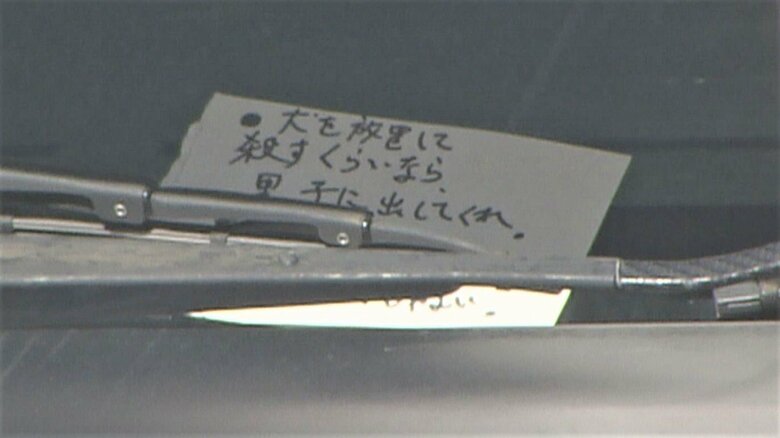 ●犬を放置して
殺すくらいなら、
里子に出してくれ。